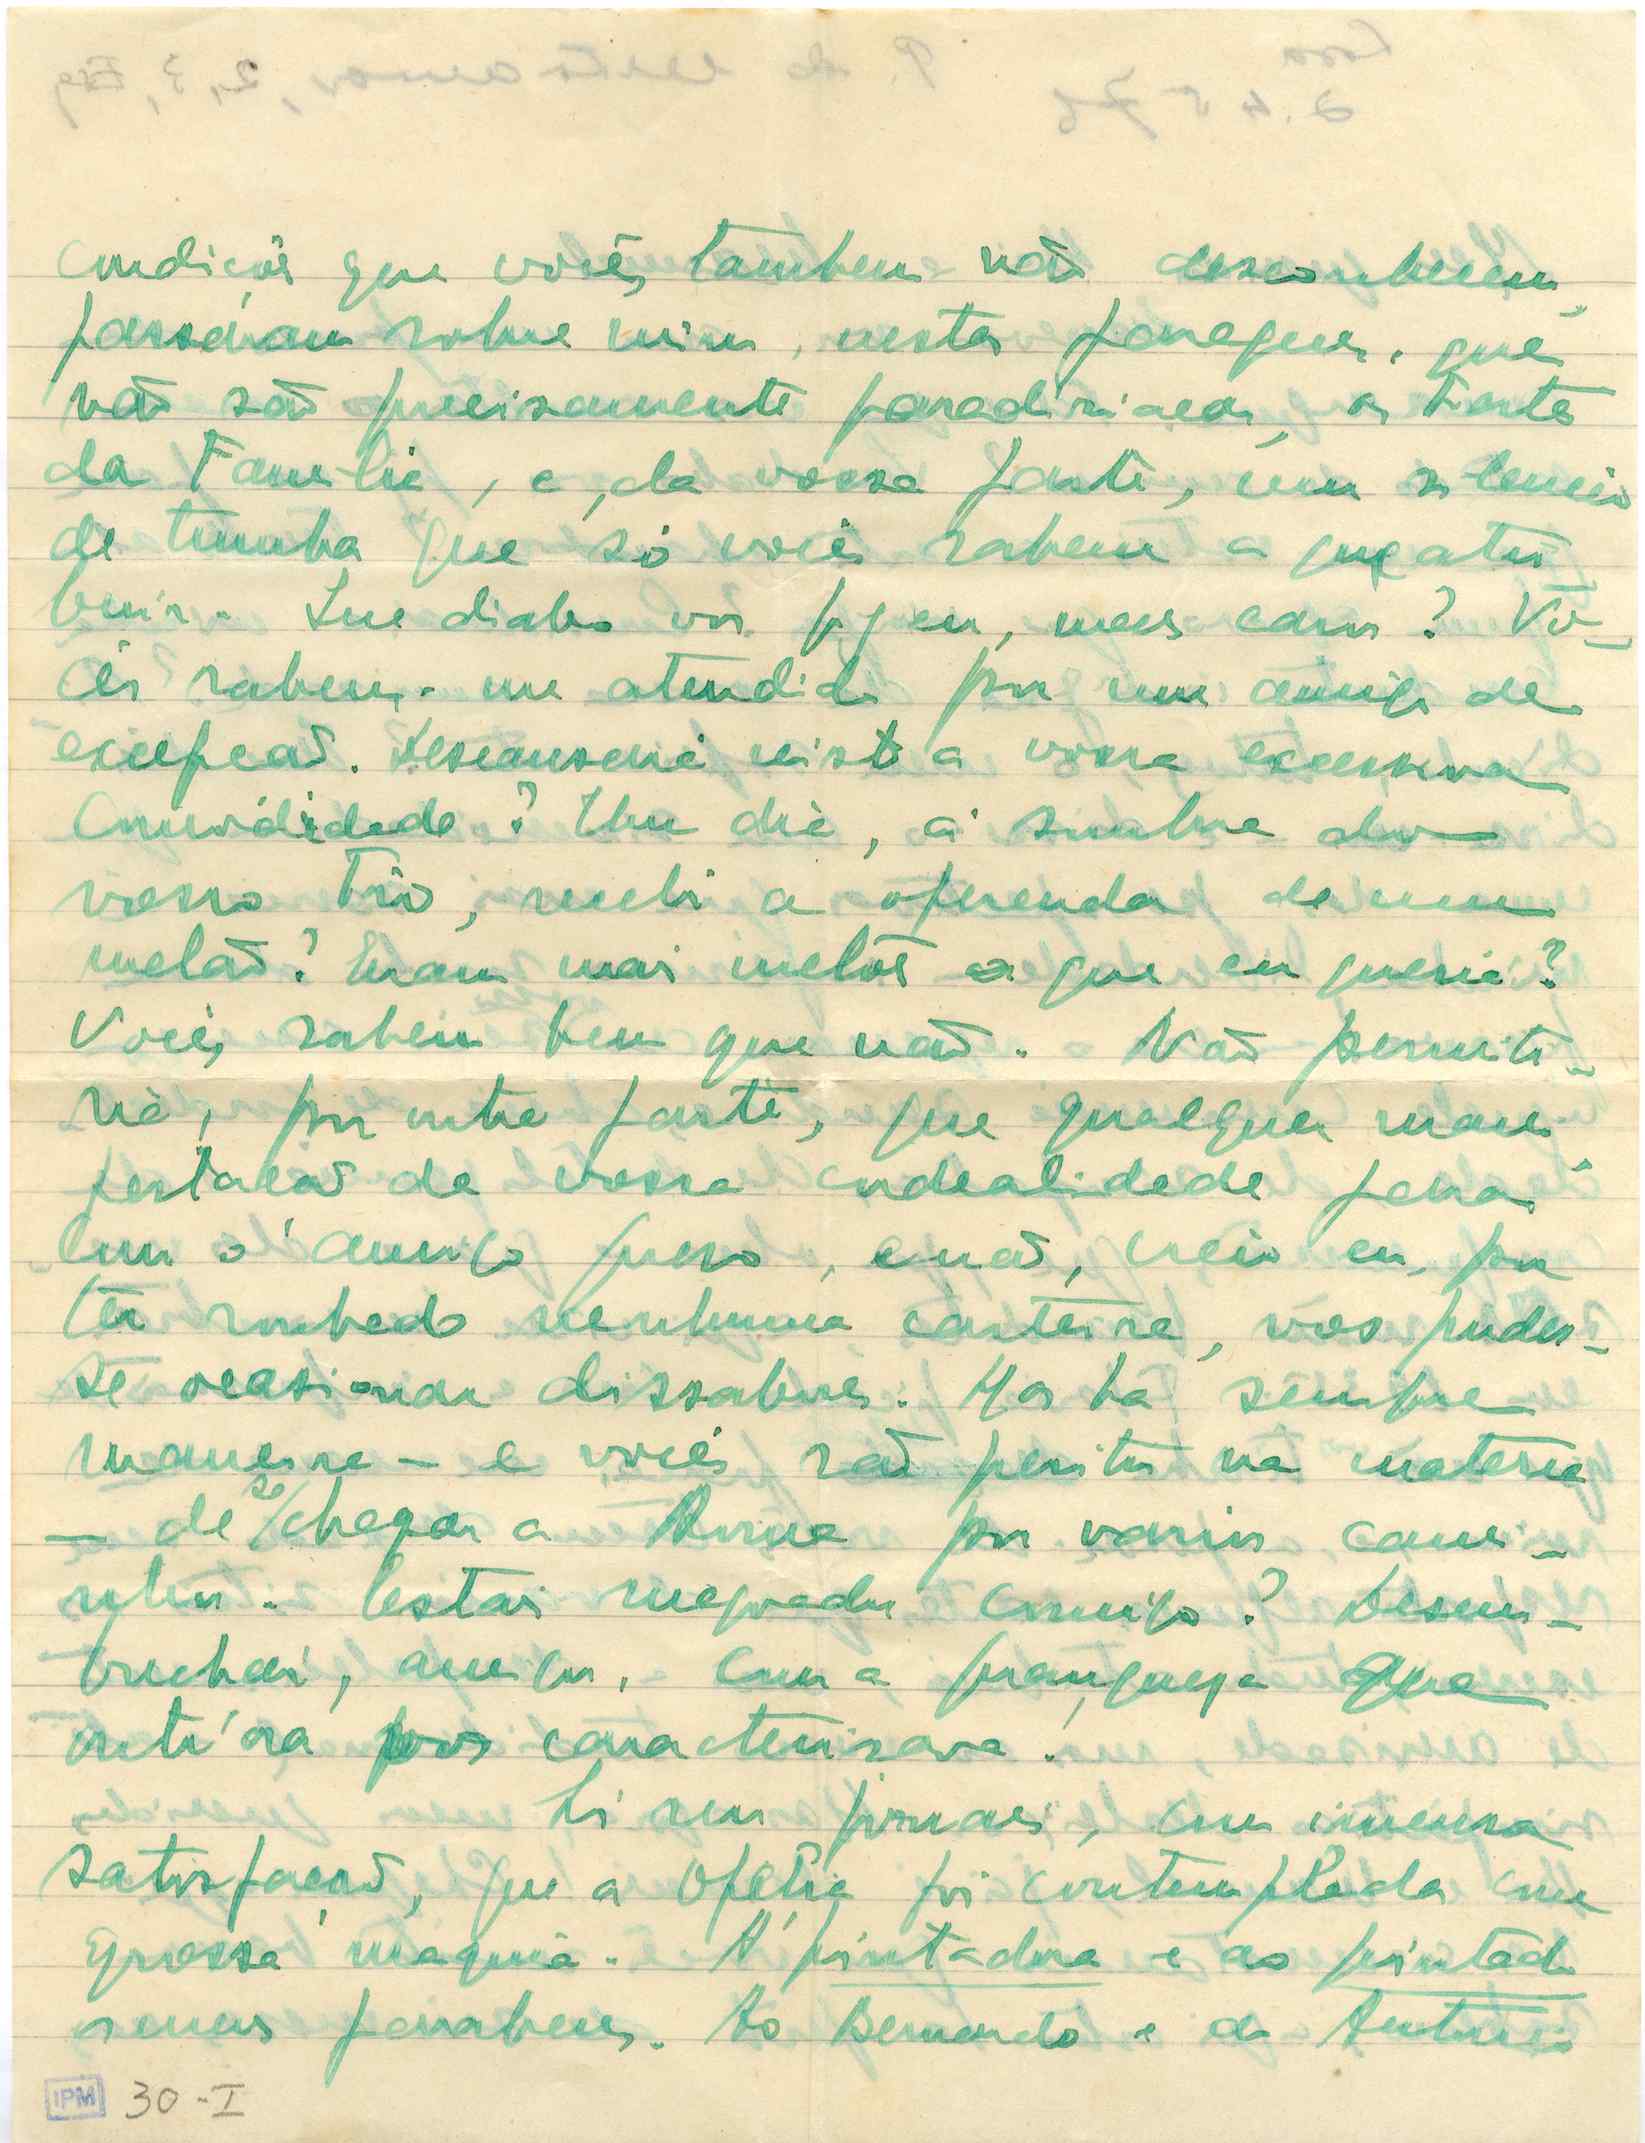 condições que vocês tambem não desconhecem,
passaram sobre mim, nestas paragens, que
não são precisamente paradisiacas, as Festas
da Familia, e, da vossa parte, um silencio
de tumba que só vocês sabem a que atri
buir. Que diabo vos fiz eu, meus caros? Vo-
cês sabem-me atendido por um amigo de
excepcão. Descansaria nisto a vossa excessiva
comodidade? Um dia, á sombra do
vosso Tio, recebi a oferenda de um
melão? Eram mais melões o que eu queria?
Vocês sabem bem que não. Não permiti-
ria, por outra parte, que qualquer mani
festacão da vossa cordealidade para
com o amigo preso, e não, creio eu, por
ter roubado nenhuma carteira, vos pudes-
se ocasionar dissabores. Mas ha sempre
maneira - e vocês são peritos na materia
- de se chegar a Roma por varios cami-
nhos. Estais zangados comigo? Desem-
buchai, amigos, com a franqueza que
outr'ora vos caracterisava!
Li nos jornais, com imensa
satisfacão, que a Ofelia foi contemplada com
grossa maquia. A' pintadora e ao pintado
os meus parabens. Ao Bernardo e ao Antonio
IPM 30-I